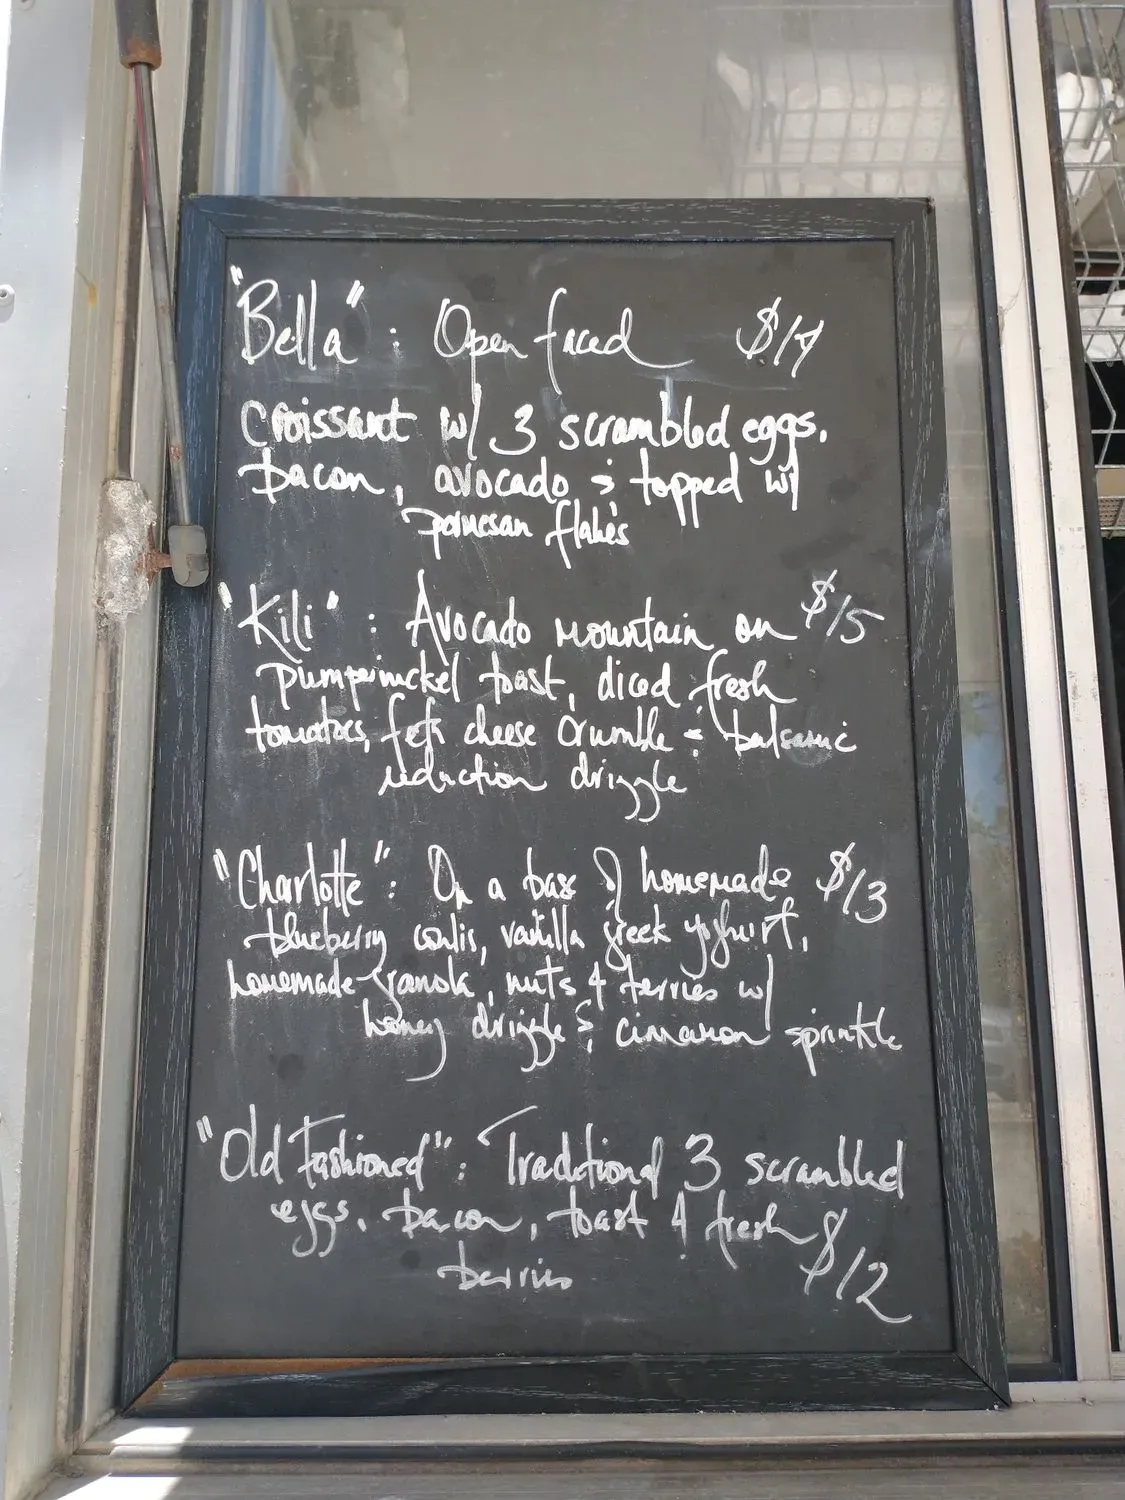 "Bella" : Open faced $14
croissant w/ 3 scrambled eggs.
bacon, avocado & topped w/
parmesan flakes
"Kili" : Avocado mountain on $15
pumpernickel toast, diced fresh
tomatoes, feta cheese crumble & balsamic
reduction drizzle
"Charlotte" : On a base of homemade $13
blueberry coulis, vanilla greek yoghurt,
homemade granola, nuts & berries w/
honey drizzle & cinnamon sprinkle
"Old Fashioned" : Traditional 3 scrambled
eggs, bacon, toast & fresh
berries $12